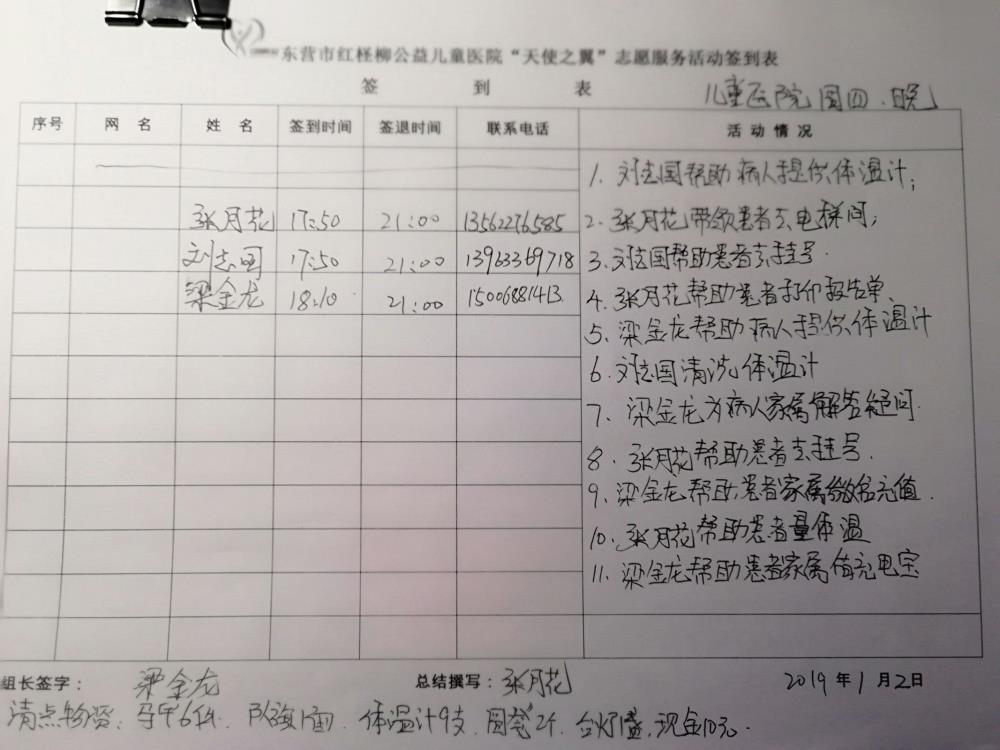 东营市红柽柳公益儿童医院“天使之翼”志愿服务活动签到表
签 到 表
儿童医院 周四.晚
序号 网 名 姓 名 签到时间 签退时间 联系电话 活动情况
1. 刘志国帮助病人提供体温计;
张月花 17:50 21:00 13562276585 2. 张月花带领患者去电梯间;
刘志国 17:50 21:00 13963369718 3. 刘志国帮助患者去挂号.
梁金龙 18:10 21:00 15006881413. 4. 张月花帮助患者打印报告单、
5. 梁金龙帮助病人提供体温计
6. 刘志国清洗体温计
7. 梁金龙为病人家属解答疑问.
8. 张月花帮助患者去挂号.
9. 梁金龙帮助患者家属缴给充值.
10. 张月花帮助患者量体温
11. 梁金龙帮助患者家属借充电宝
组长签字: 梁金龙 总结撰写: 张月花 2019 年 1 月 2 日
清点物资: 马甲6件. 队旗1面. 体温计9支. 圆笔2个. 台灯1盏. 现金10元.